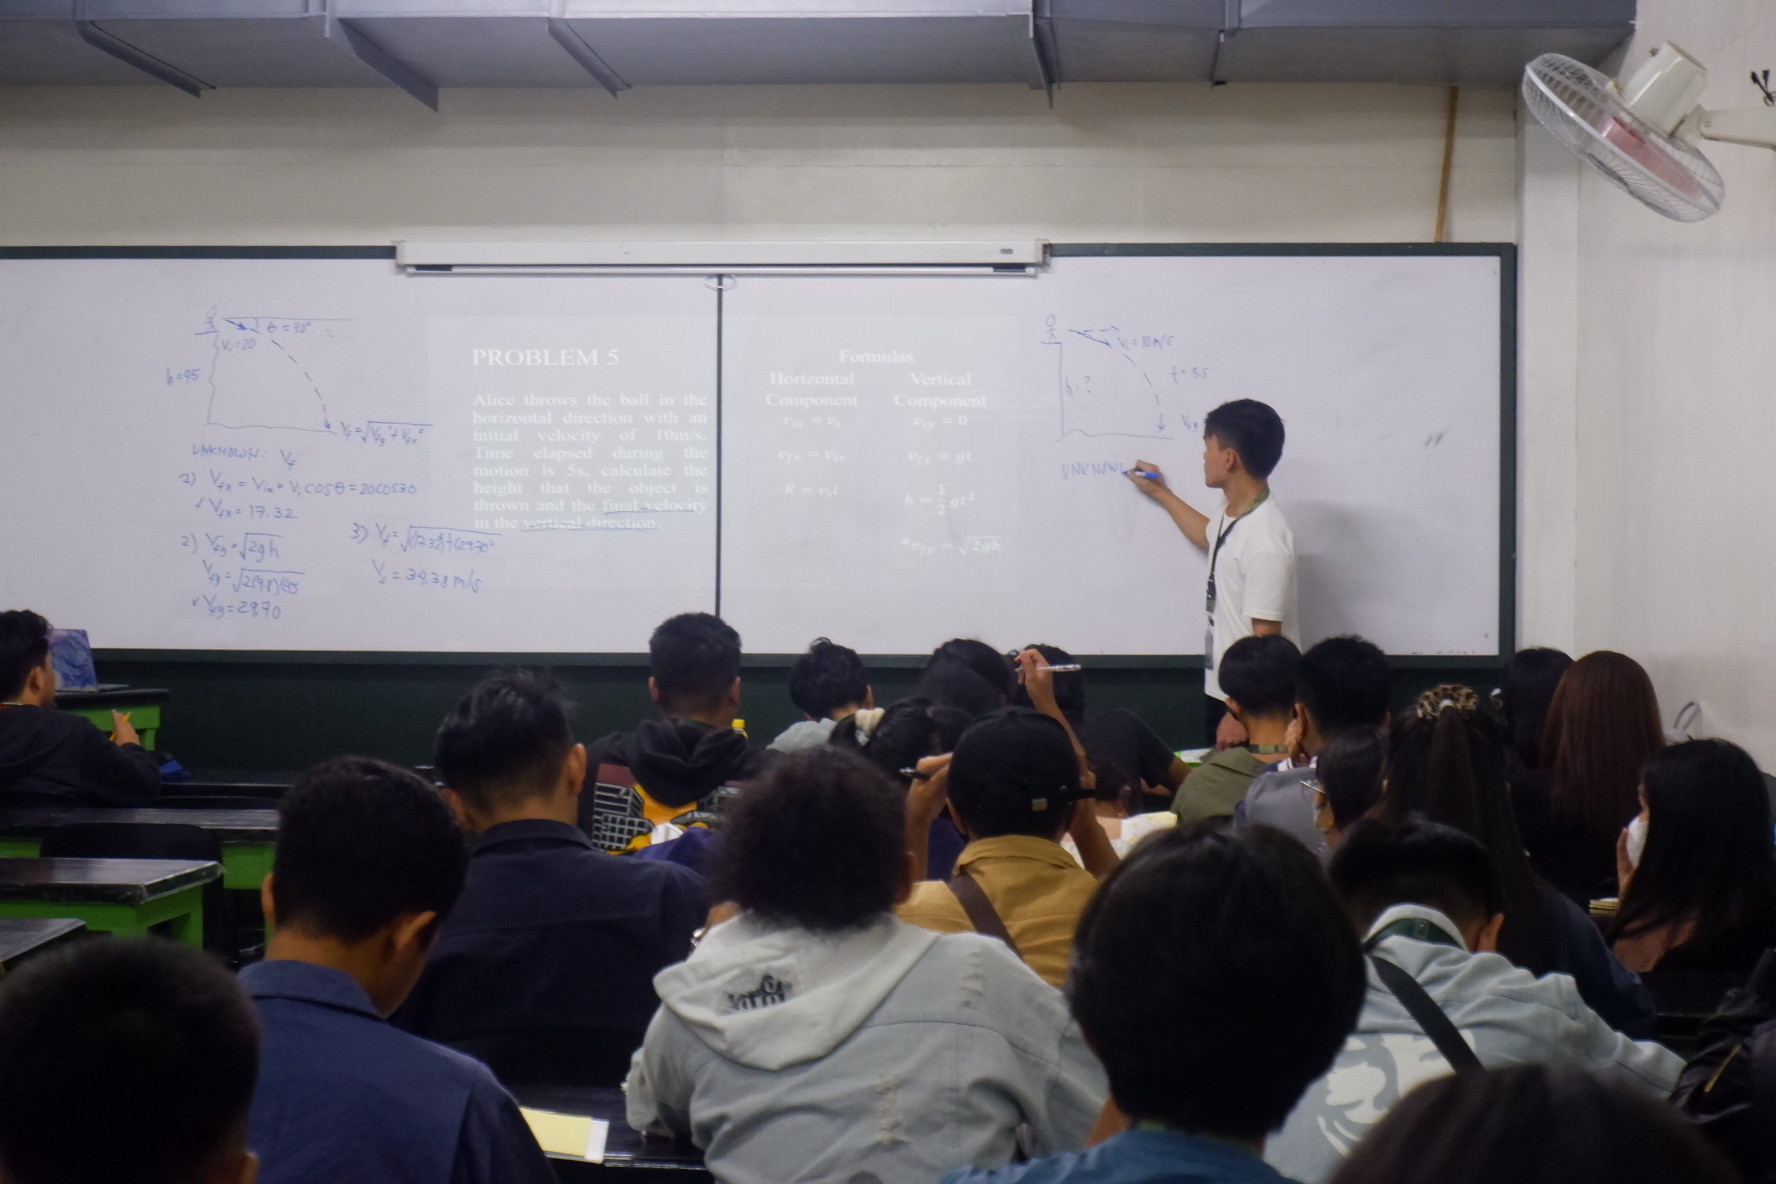 θ = 30°
Vi = 20
h=45
Vf = √Vfy² + Vfx²
UNKNOWN: Vf
1) Vfx = Vix = Vi COSθ = 20COS30
✓ Vfx = 17.32
2) Vfy = √2gh
Vfy = √2(9.8)(45
✓ Vfy = 29.70
3) Vf = √(17.32)²+(29.70²
Vf = 34.38 m/s
PROBLEM 5
Alice throws the ball in the
horizontal direction with an
initial velocity of 10m/s.
Time elapsed during the
motion is 5s, calculate the
height that the object is
thrown and the final velocity
in the vertical direction.
Formulas
Horizontal
Component
vix = vi
vfx = vix
R = vit
Vertical
Component
viy = 0
vfy = gt
h = 1/2 gt²
*vfy = √2gh
Vi = 10m/s
t = 5s
h = ?
Vfy
UNKNOW